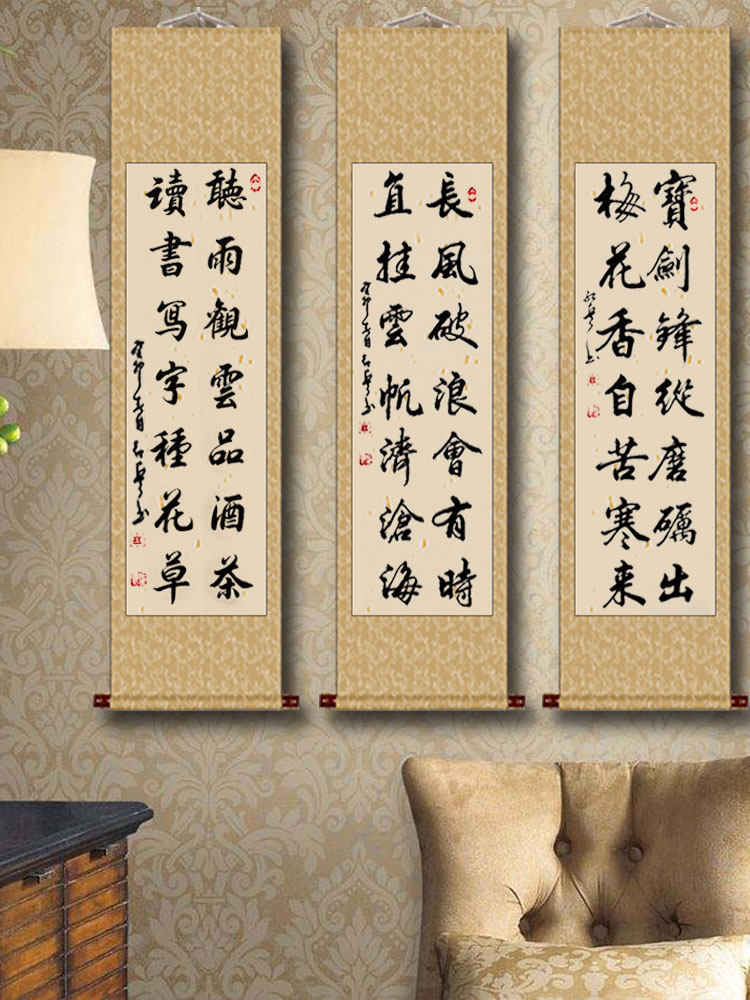 寶劍鋒從磨礪出
梅花香自苦寒来
長風破浪會有時
直挂雲帆濟滄海
癸卯
聽雨觀雲品酒茶
讀書寫字種花草
癸卯